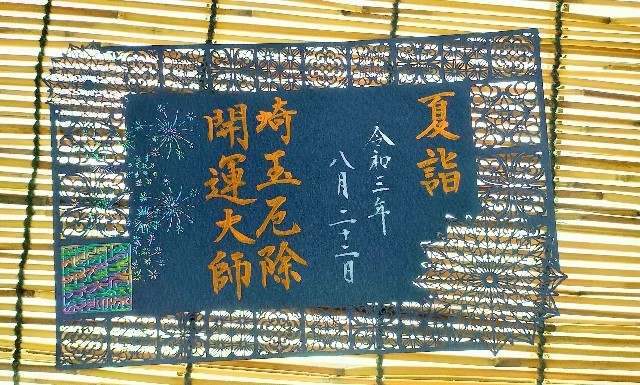 夏詣
令和三年
八月二十二日
埼玉厄除
開運大師